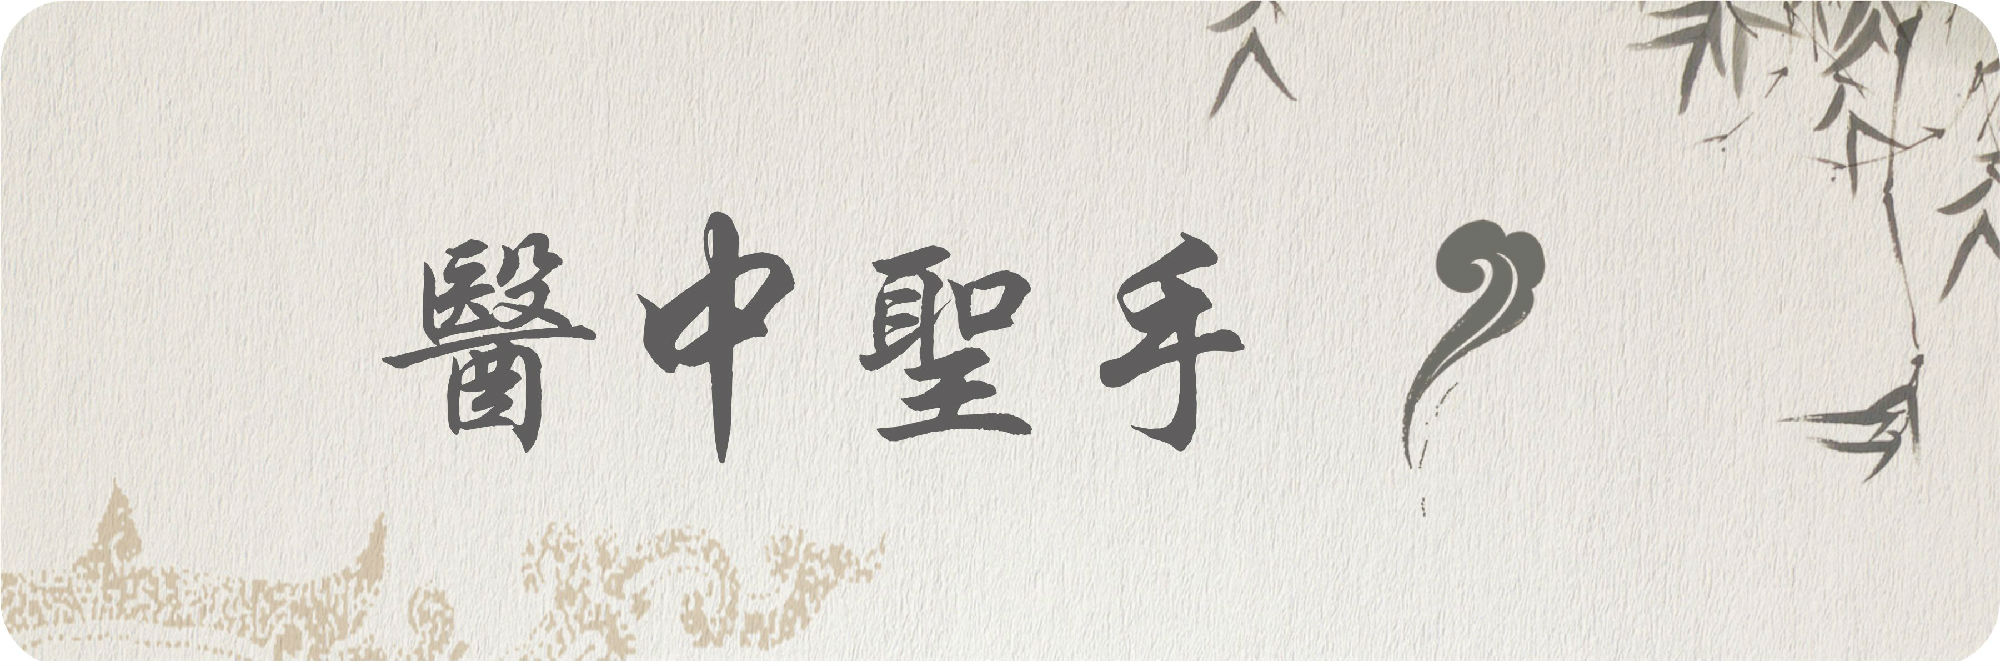 醫中聖手